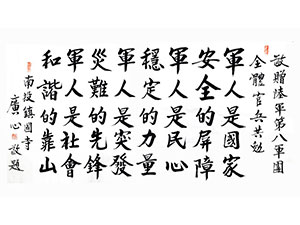 敬贈陸軍第八軍團
全體官兵共勉
軍人是國家
安全的屏障
軍人是民心
穩定的力量
軍人是突發
災難的先鋒
軍人是社會
和諧的靠山
南投鎮國寺
廣心敬題